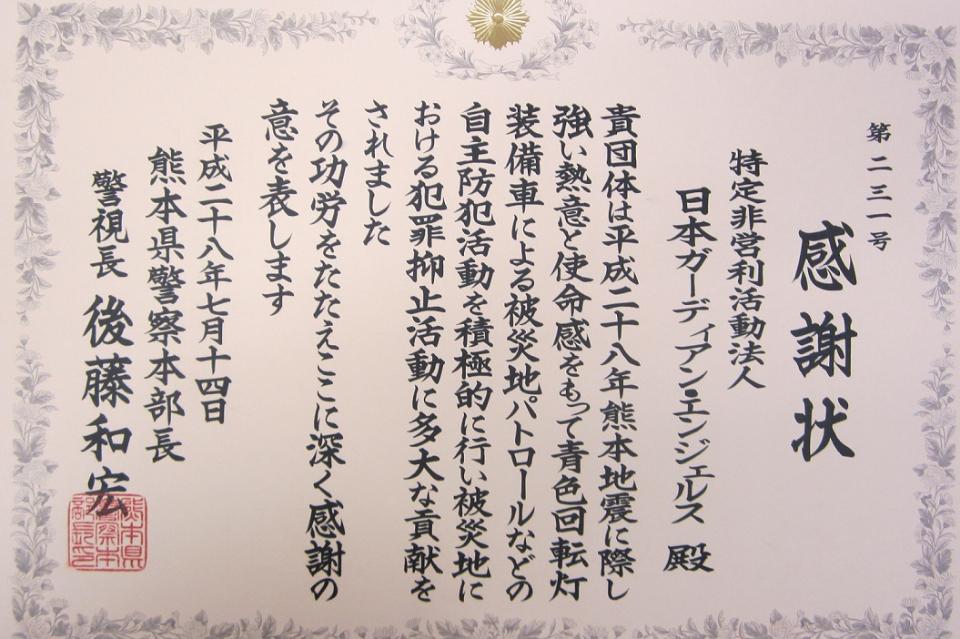 第二三一号
感謝状
特定非営利活動法人
日本ガーディアン・エンジェルス 殿
貴団体は平成二十八年熊本地震に際し
強い熱意と使命感をもって青色回転灯
装備車による被災地パトロールなどの
自主防犯活動を積極的に行い被災地に
おける犯罪抑止活動に多大な貢献を
されました
その功労をたたえここに深く感謝の
意を表します
平成二十八年七月十四日
熊本県警察本部長
警視長 後藤和宏
熊本県
警察本
部長印